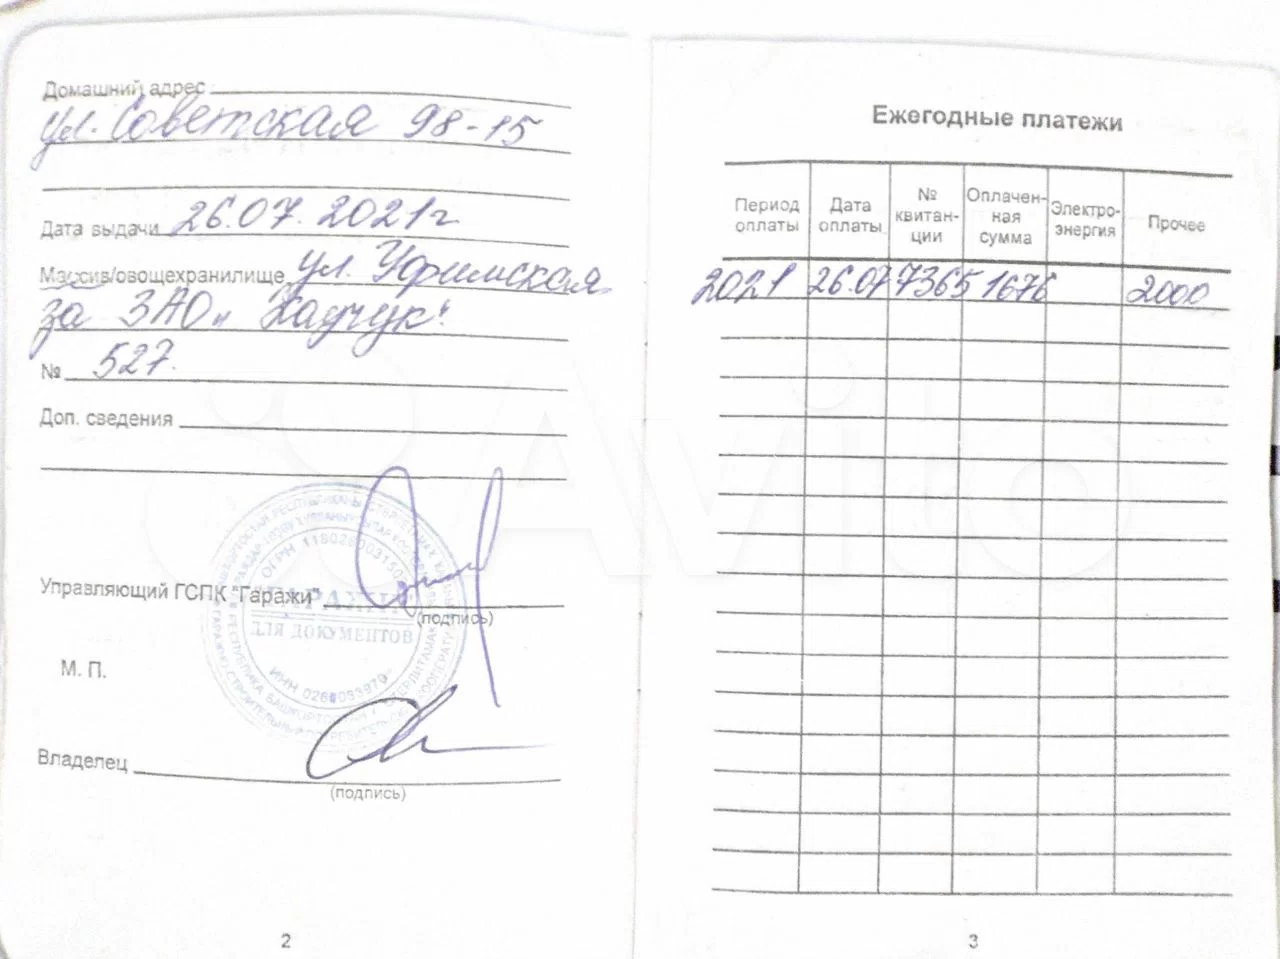 Домашний адрес
ул. Советская 98-15
Дата выдачи 26.07.2021г
Массив/овощехранилище ул. Уфимская
за ЗАО "Каучук".
№ 527.
Доп. сведения
Управляющий ГСПК "Гаражи"
(подпись)
ГАРАЖИ
ДЛЯ ДОКУМЕНТОВ
М. П.
Владелец
(подпись)
2
Ежегодные платежи
Период оплаты Дата оплаты № квитан-ции Оплачен-ная сумма Электро-энергия Прочее
2021 26.07 7365 1676 2000
3
Avito